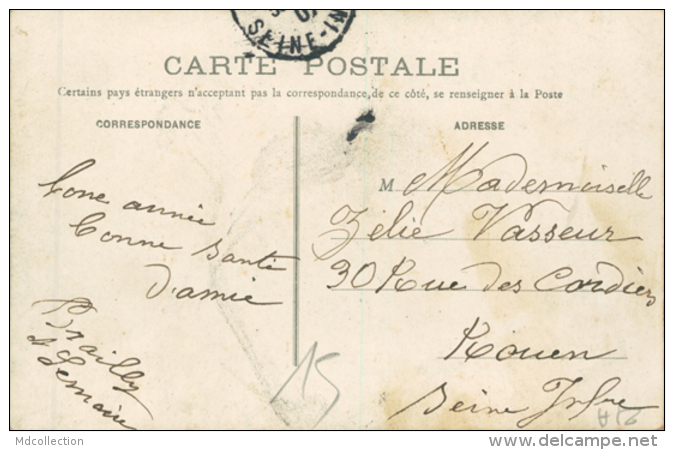 SEINE-IN
CARTE POSTALE
Certains pays étrangers n'acceptant pas la correspondance, de ce côté, se renseigner à la Poste
CORRESPONDANCE
ADRESSE
bone année
bonne santé
d'amie
Brailly
Lemaire
M Mademoiselle
Zélie Vasseur
30 Rue des Cordiers
Rouen
Seine Infre
15
Mdcollection
www.delcampe.net